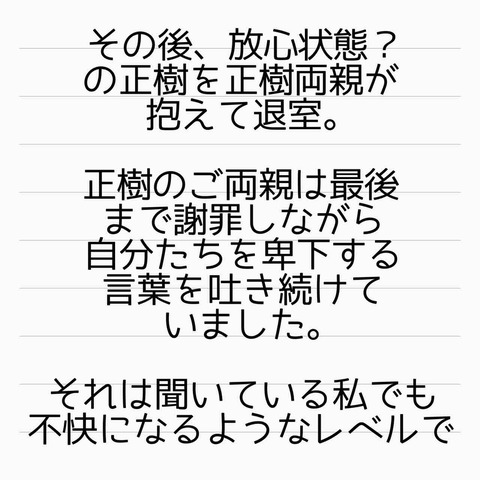 その後、放心状態？
の正樹を正樹両親が
抱えて退室。
正樹のご両親は最後
まで謝罪しながら
自分たちを卑下する
言葉を吐き続けて
いました。
それは聞いている私でも
不快になるようなレベルで